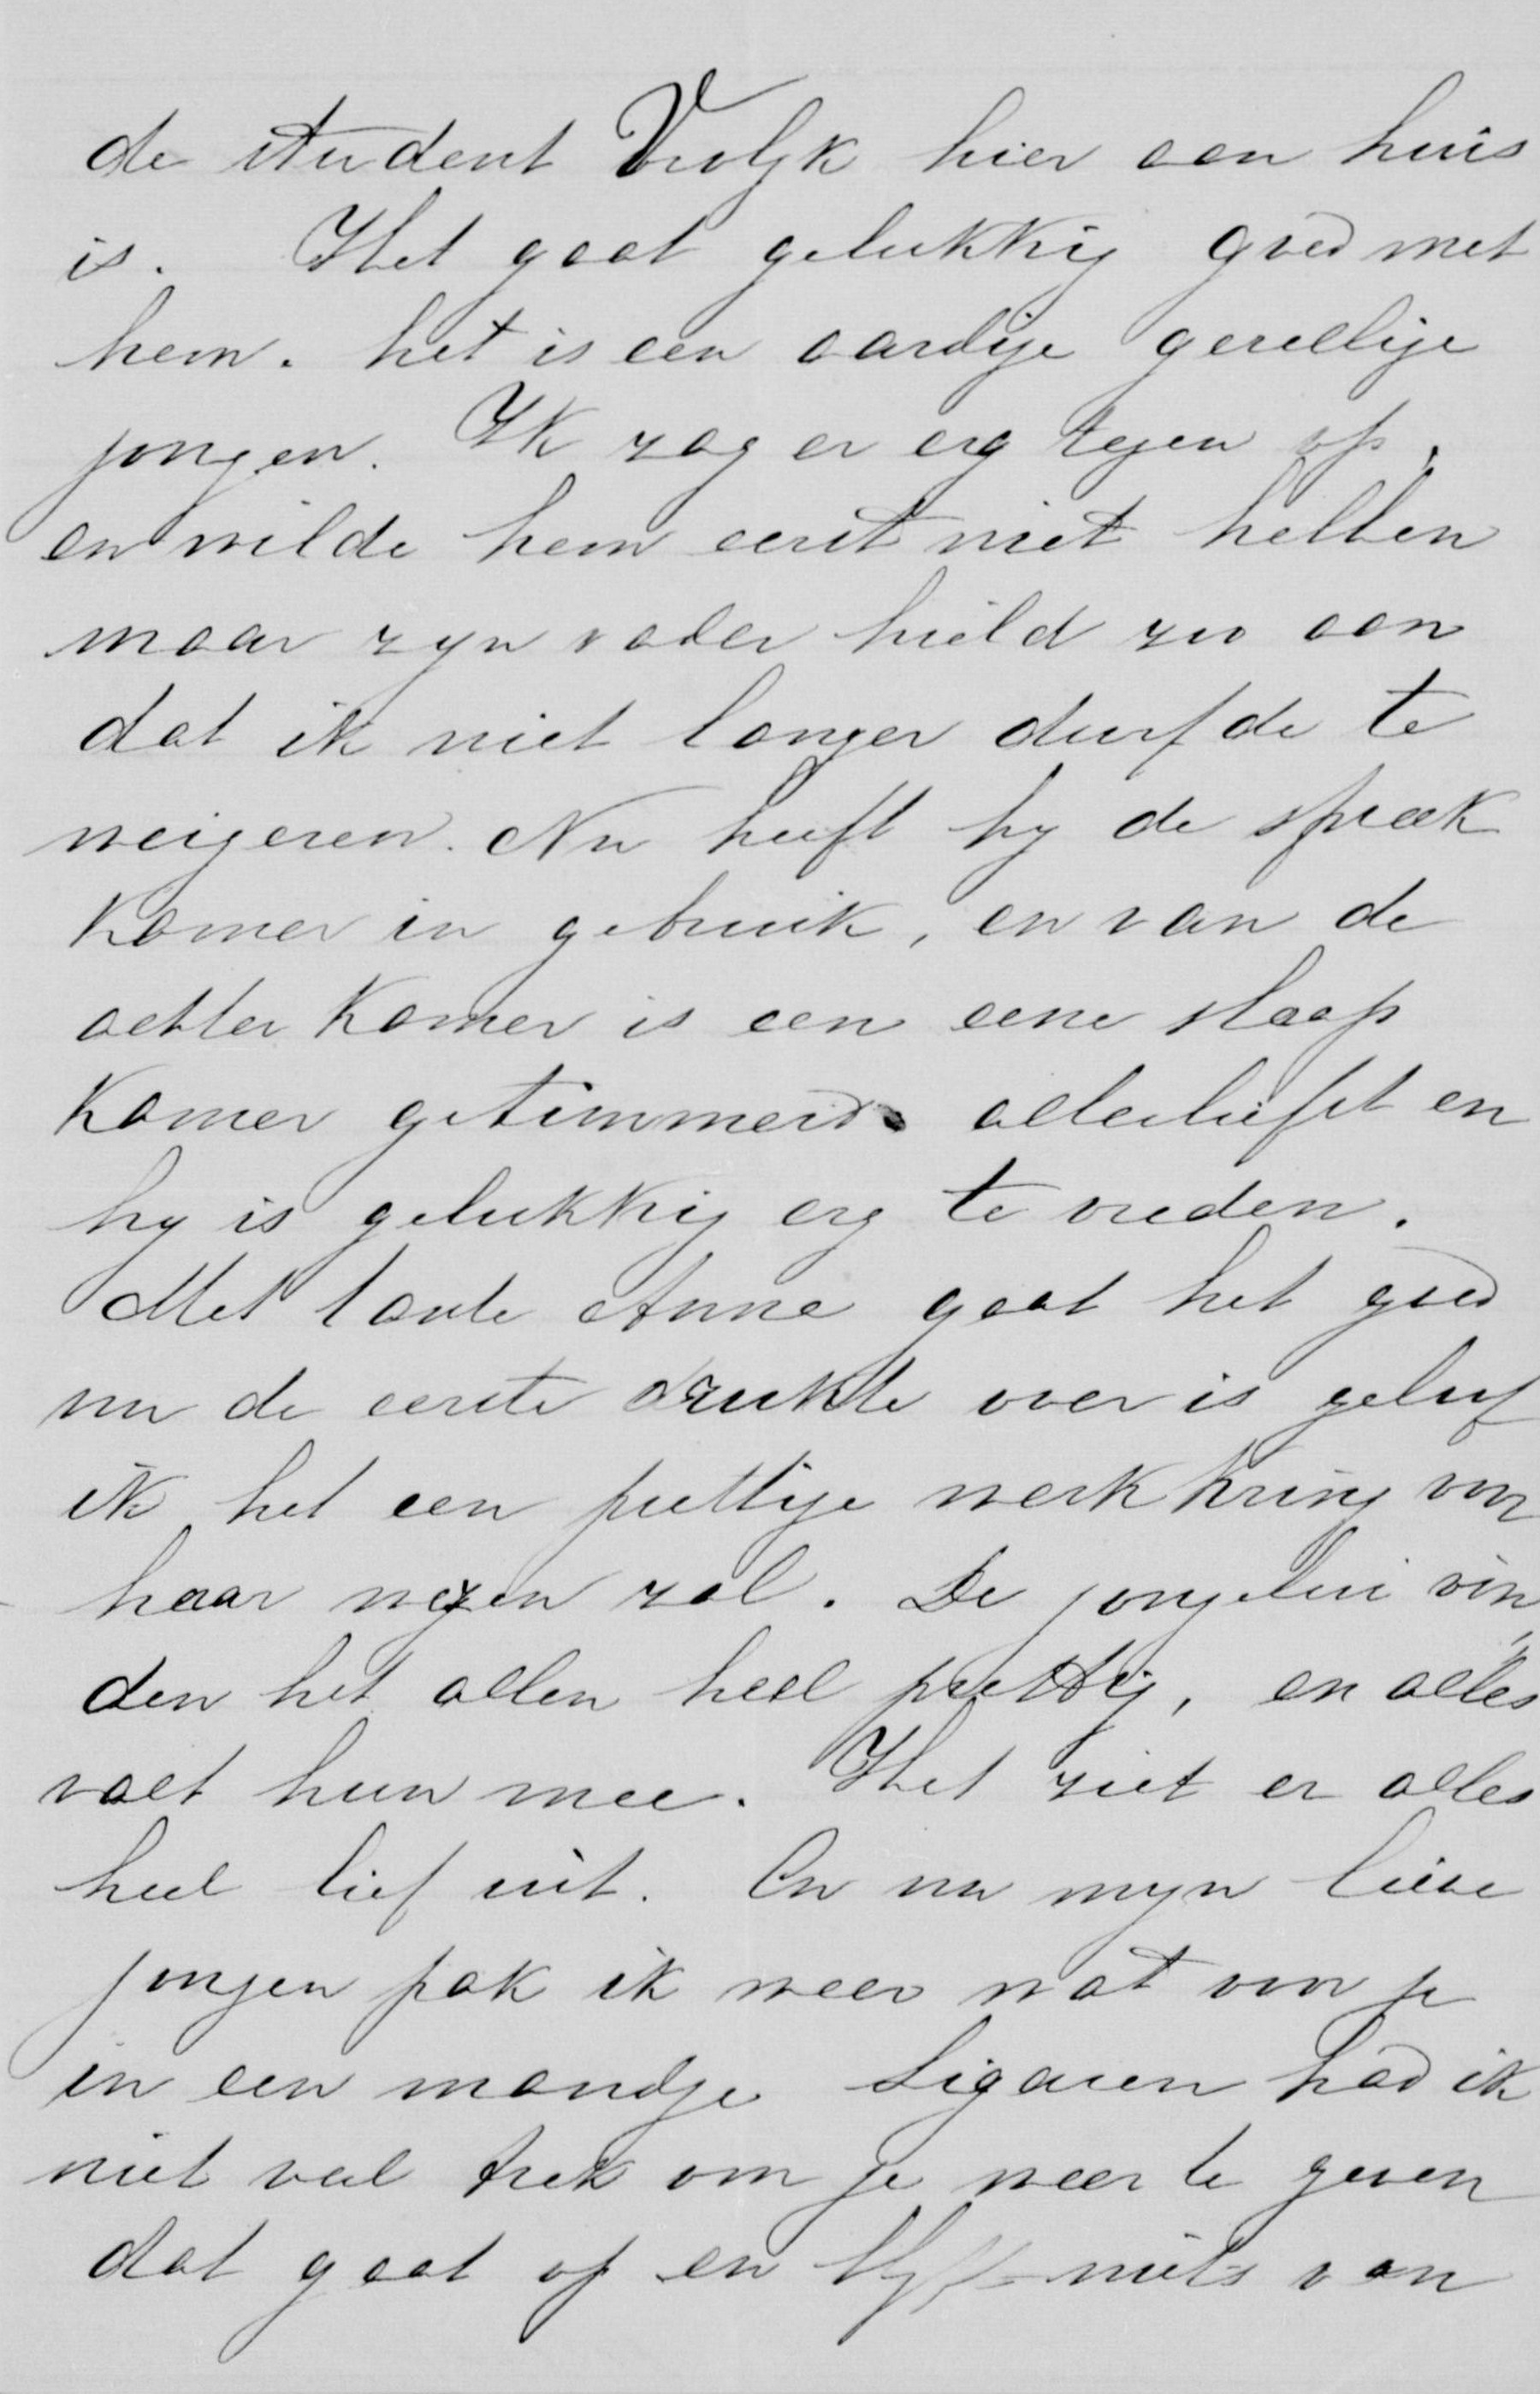 de student Vrolyk hier aan huis
is. Het gaat gelukkig goed met
hem. het is een aardige gezellige
jongen. Ik zag er erg tegen op,
en wilde hem eerst niet hebben
maar zyn vader hield zoo aan
dat ik niet langer durfde te
weigeren. Nu heeft hy de spreek
kamer in gebruik, en van de
achter kamer is een eene slaap
kamer getimmerd allerliefst en
hy is gelukkig erg te vreden.
Met tante Anna gaat het goed
nu de eerste drukte over is geloof
ik het een prettige werkkring voor
haar wezen zal. De jongelui vin
den het allen heel prettig, en alles
valt hun mee. Het ziet er alles
heel lief uit. En nu myn lieve
jongen pak ik weer wat voor je
in een mandje Sigaren had ik
niet veel trek om je weer te geven
dat gaat op en blyft niets van